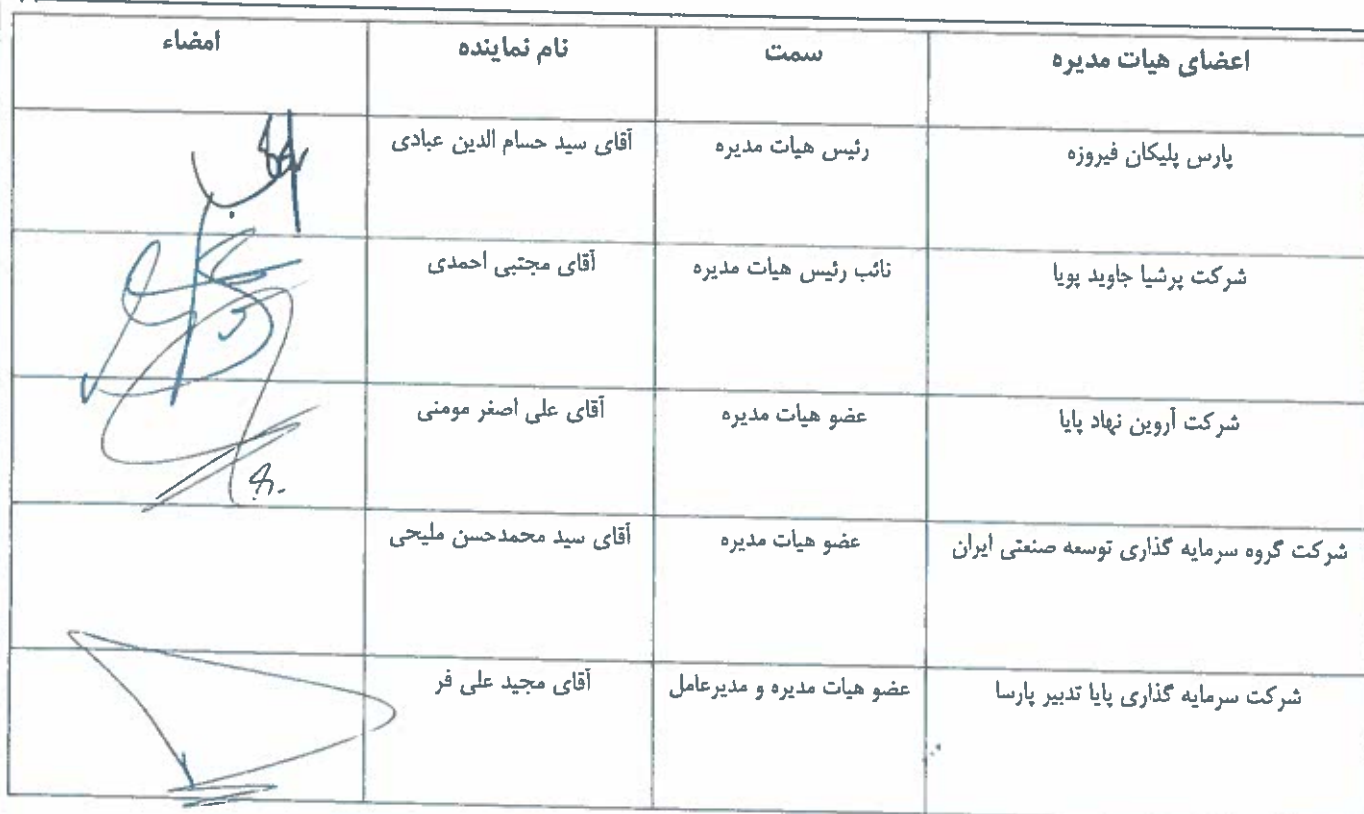 اعضای هیات مدیره سمت نام نماینده امضاء
پارس پلیکان فیروزه رئیس هیات مدیره آقای سید حسام الدین عبادی
شرکت پرشیا جاوید پویا نائب رئیس هیات مدیره آقای مجتبی احمدی
شرکت آروین نهاد پایا عضو هیات مدیره آقای علی اصغر مومنی
شرکت گروه سرمایه گذاری توسعه صنعتی ایران عضو هیات مدیره آقای سید محمدحسن ملیحی
شرکت سرمایه گذاری پایا تدبیر پارسا عضو هیات مدیره و مدیرعامل آقای مجید علی فر